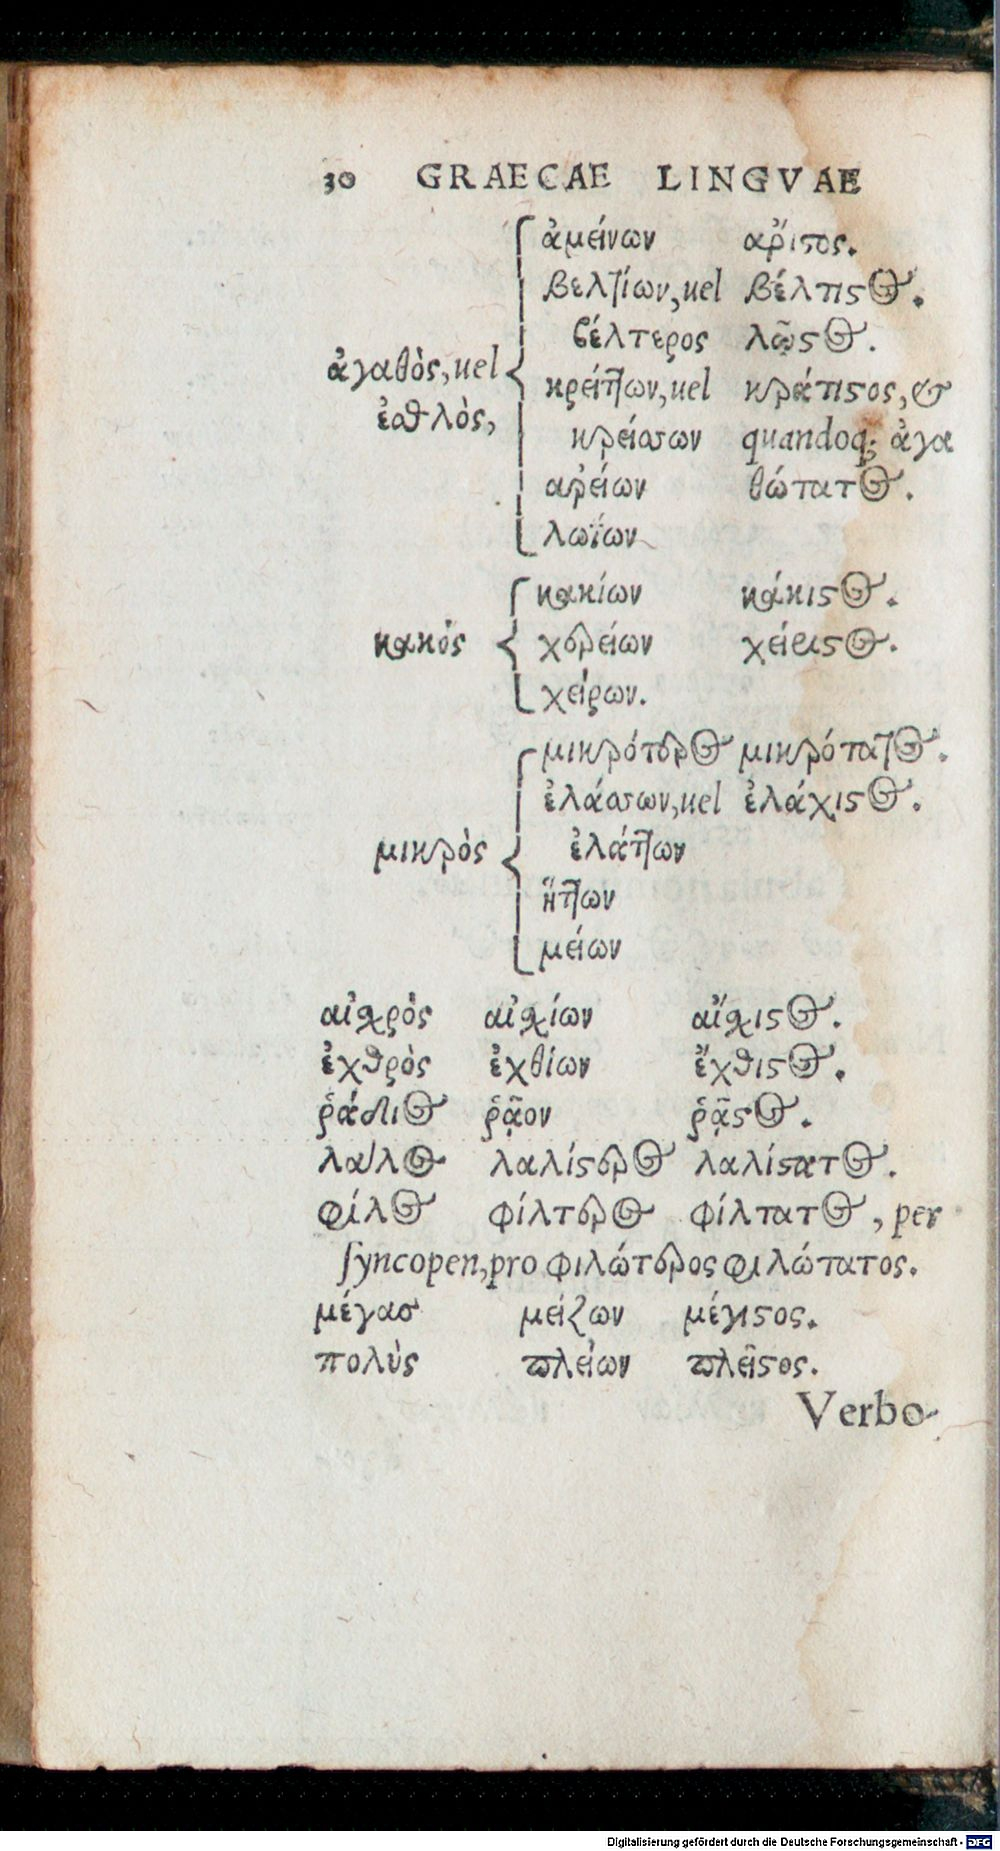 30 GRAECAE LINGVAE
ἀμείνων ἄριστος.
βελτίων, uel βέλτιστος.
βέλτερος λῷστος.
ἀγαθὸς, uel κρείττων, uel κράτιστος, &
ἐσθλὸς, κρείσσων quandoq; ἀγα
αρείων θώτατος.
λωΐων
κακίων κάκιστος.
κακός χερείων χείριστος.
χείρων.
μικρότερος μικρότατος.
ἐλάσσων, uel ἐλάχιστος.
μικρὸς ἐλάττων
ἥττων
μείων
αἰσχρὸς αἰσχίων αἴσχιστος.
ἐχθρὸς ἐχθίων ἔχθιστος.
ῥάδιος ῥᾷον ῥᾷστος.
λάλος λαλίστερος λαλίστατος.
φίλος φίλτερος φίλτατος, per
ſyncopen, pro φιλώτερος φιλώτατος.
μέγασ μείζων μέγιστος.
πολὺς πλείων πλεῖστος.
Verbo-
Digitalisierung gefördert durch die Deutsche Forschungsgemeinschaft - DFG